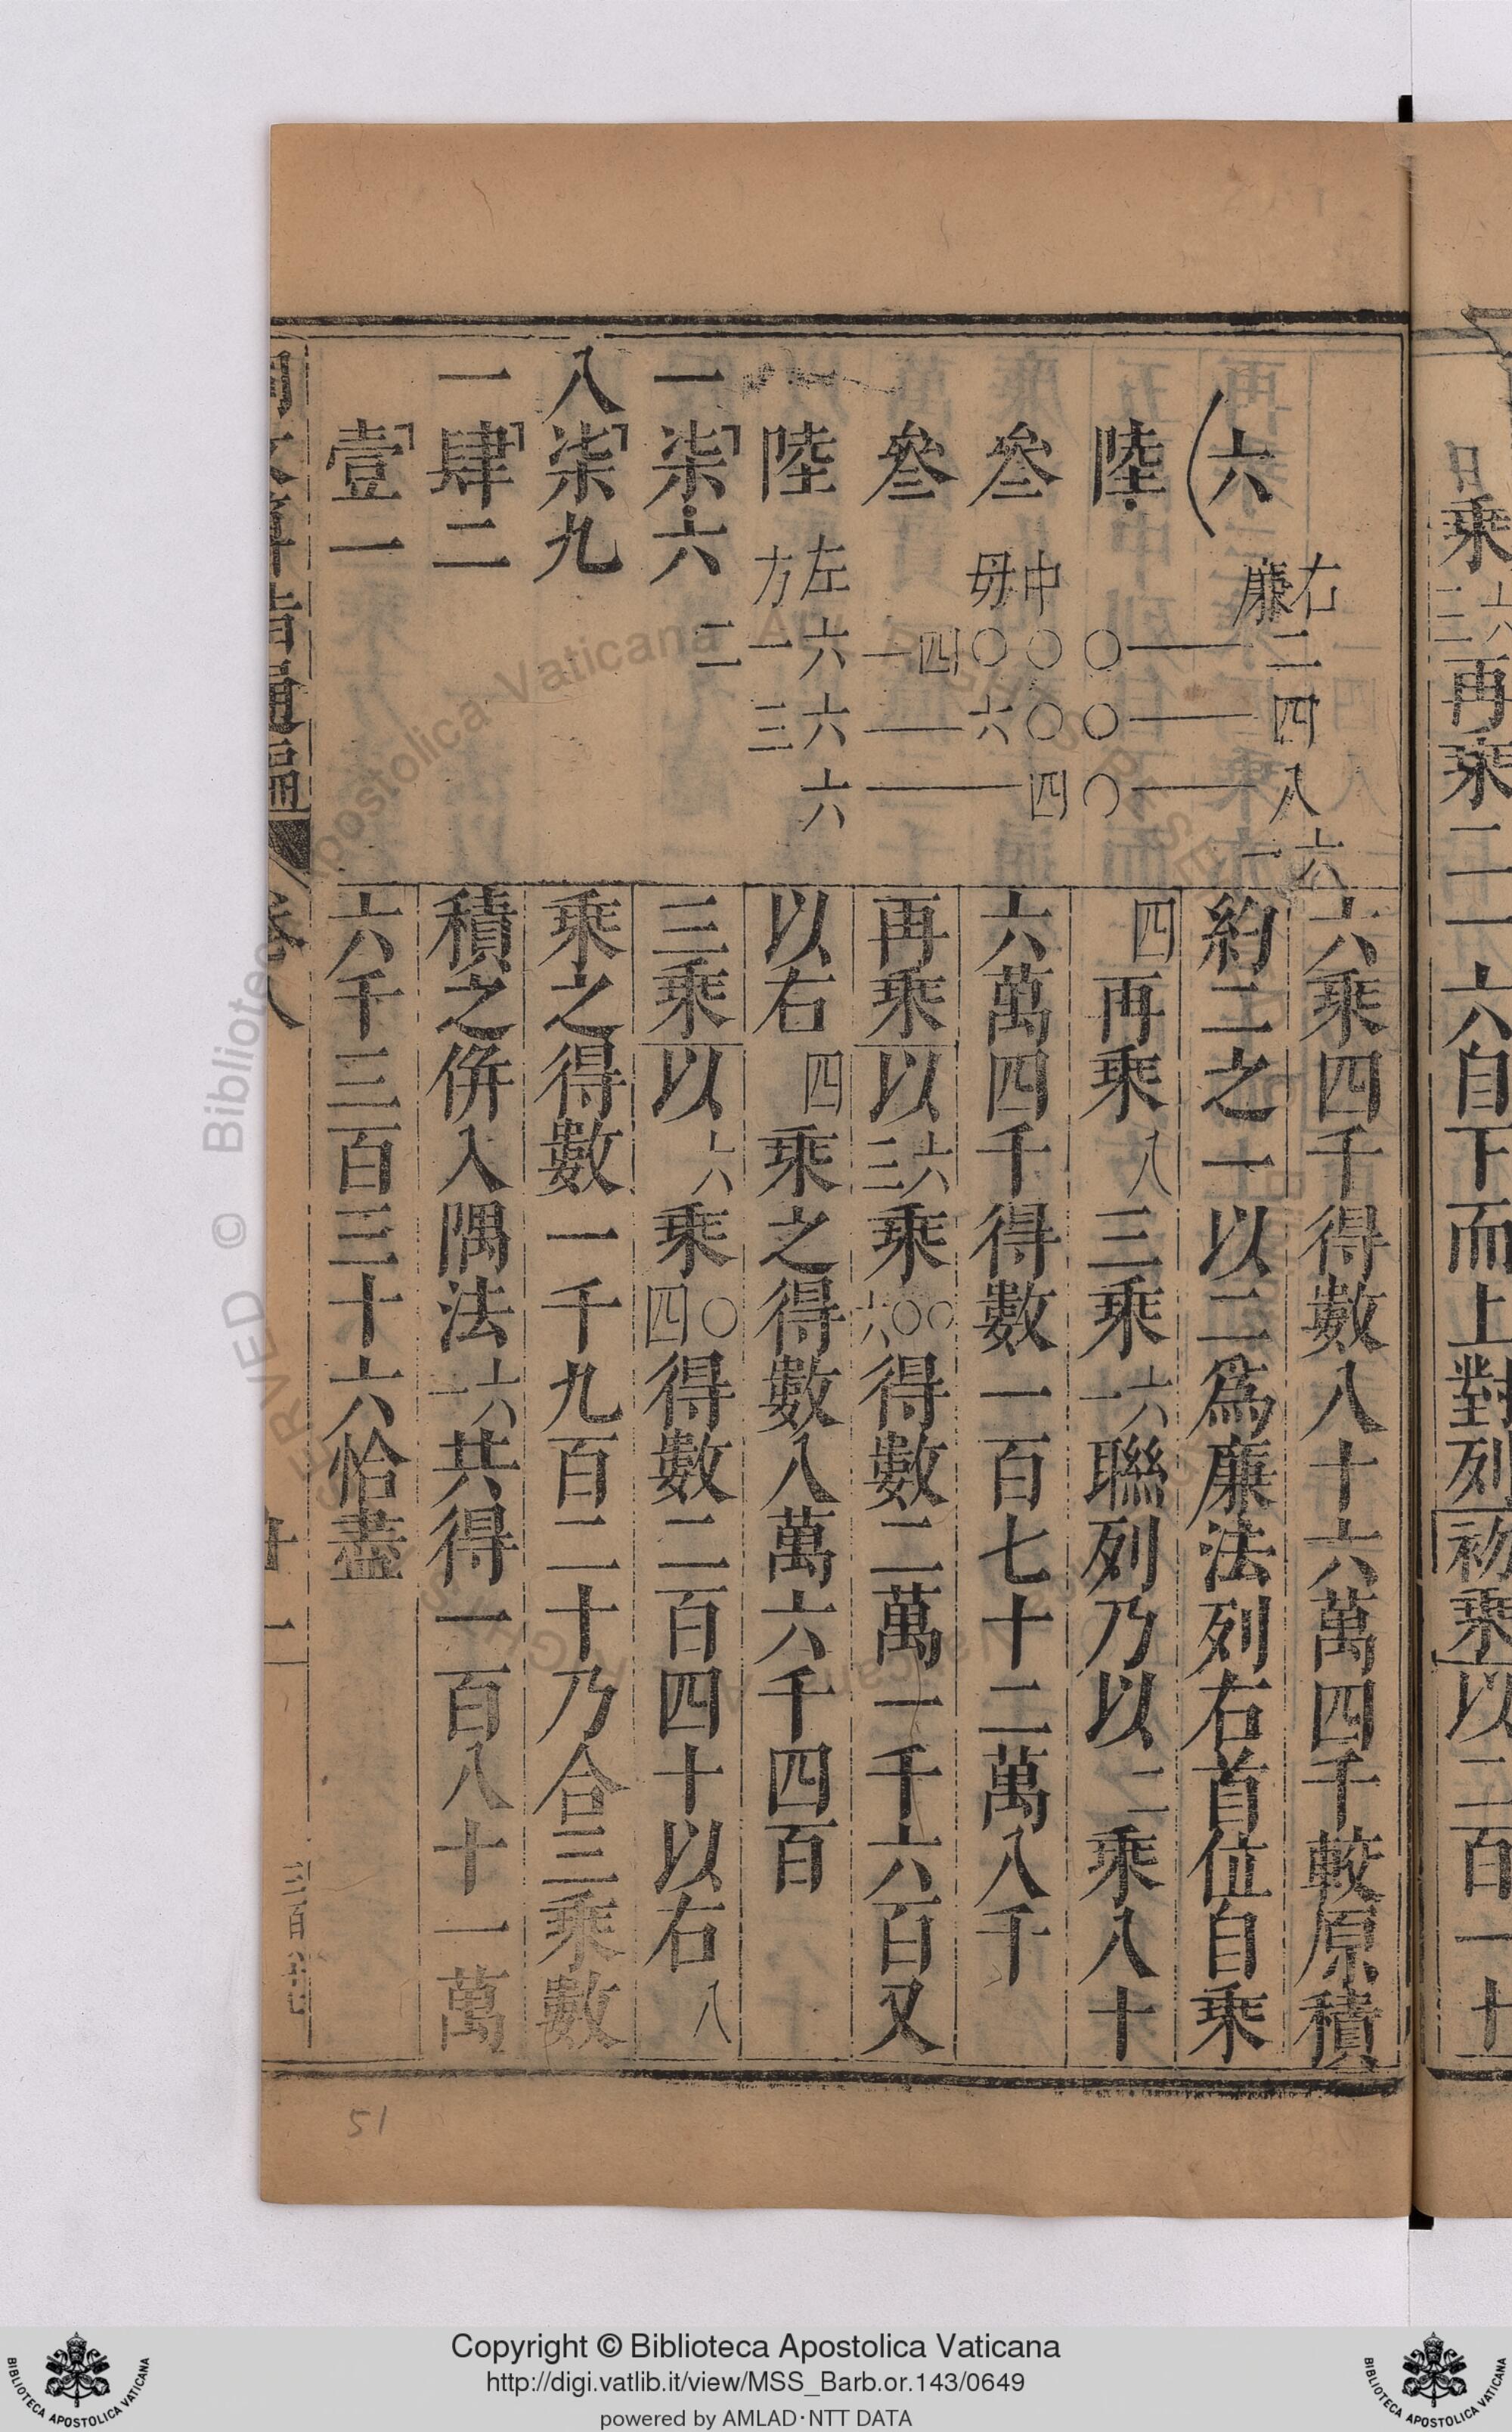 六乘四千得數八十六萬四千較原積
約二之一以二爲廉法列右首位自乘
四再乘八三乘一六聯列乃以二乘八十
六萬四千得數一百七十二萬八千
再乘以三六乘六〇〇得數二萬一千六百又
以右四乘之得數八萬六千四百
三乘以六乘四〇得數二百四十以右八
乘之得數一千九百二十乃合三乘數
積之併入隅法一六共得一百八十一萬
六千三百三十六恰盡
六
陸
叄
叄
陸
一柒六
八柒九
一肆二
壹一
右廉 二 四 八 一六
〇 〇 〇
中毋 〇〇 〇六 四
四一
左方 六一 六三 六
二
乘 三六 再乘二一六自下而上對列初乘以二百一十
廿一
51
Copyright © Biblioteca Apostolica Vaticana
http://digi.vatlib.it/view/MSS_Barb.or.143/0649
powered by AMLAD·NTT DATA
BIBLIOTECA APOSTOLICA VATICANA
BIBLIOTECA APOSTOLICA VATICANA